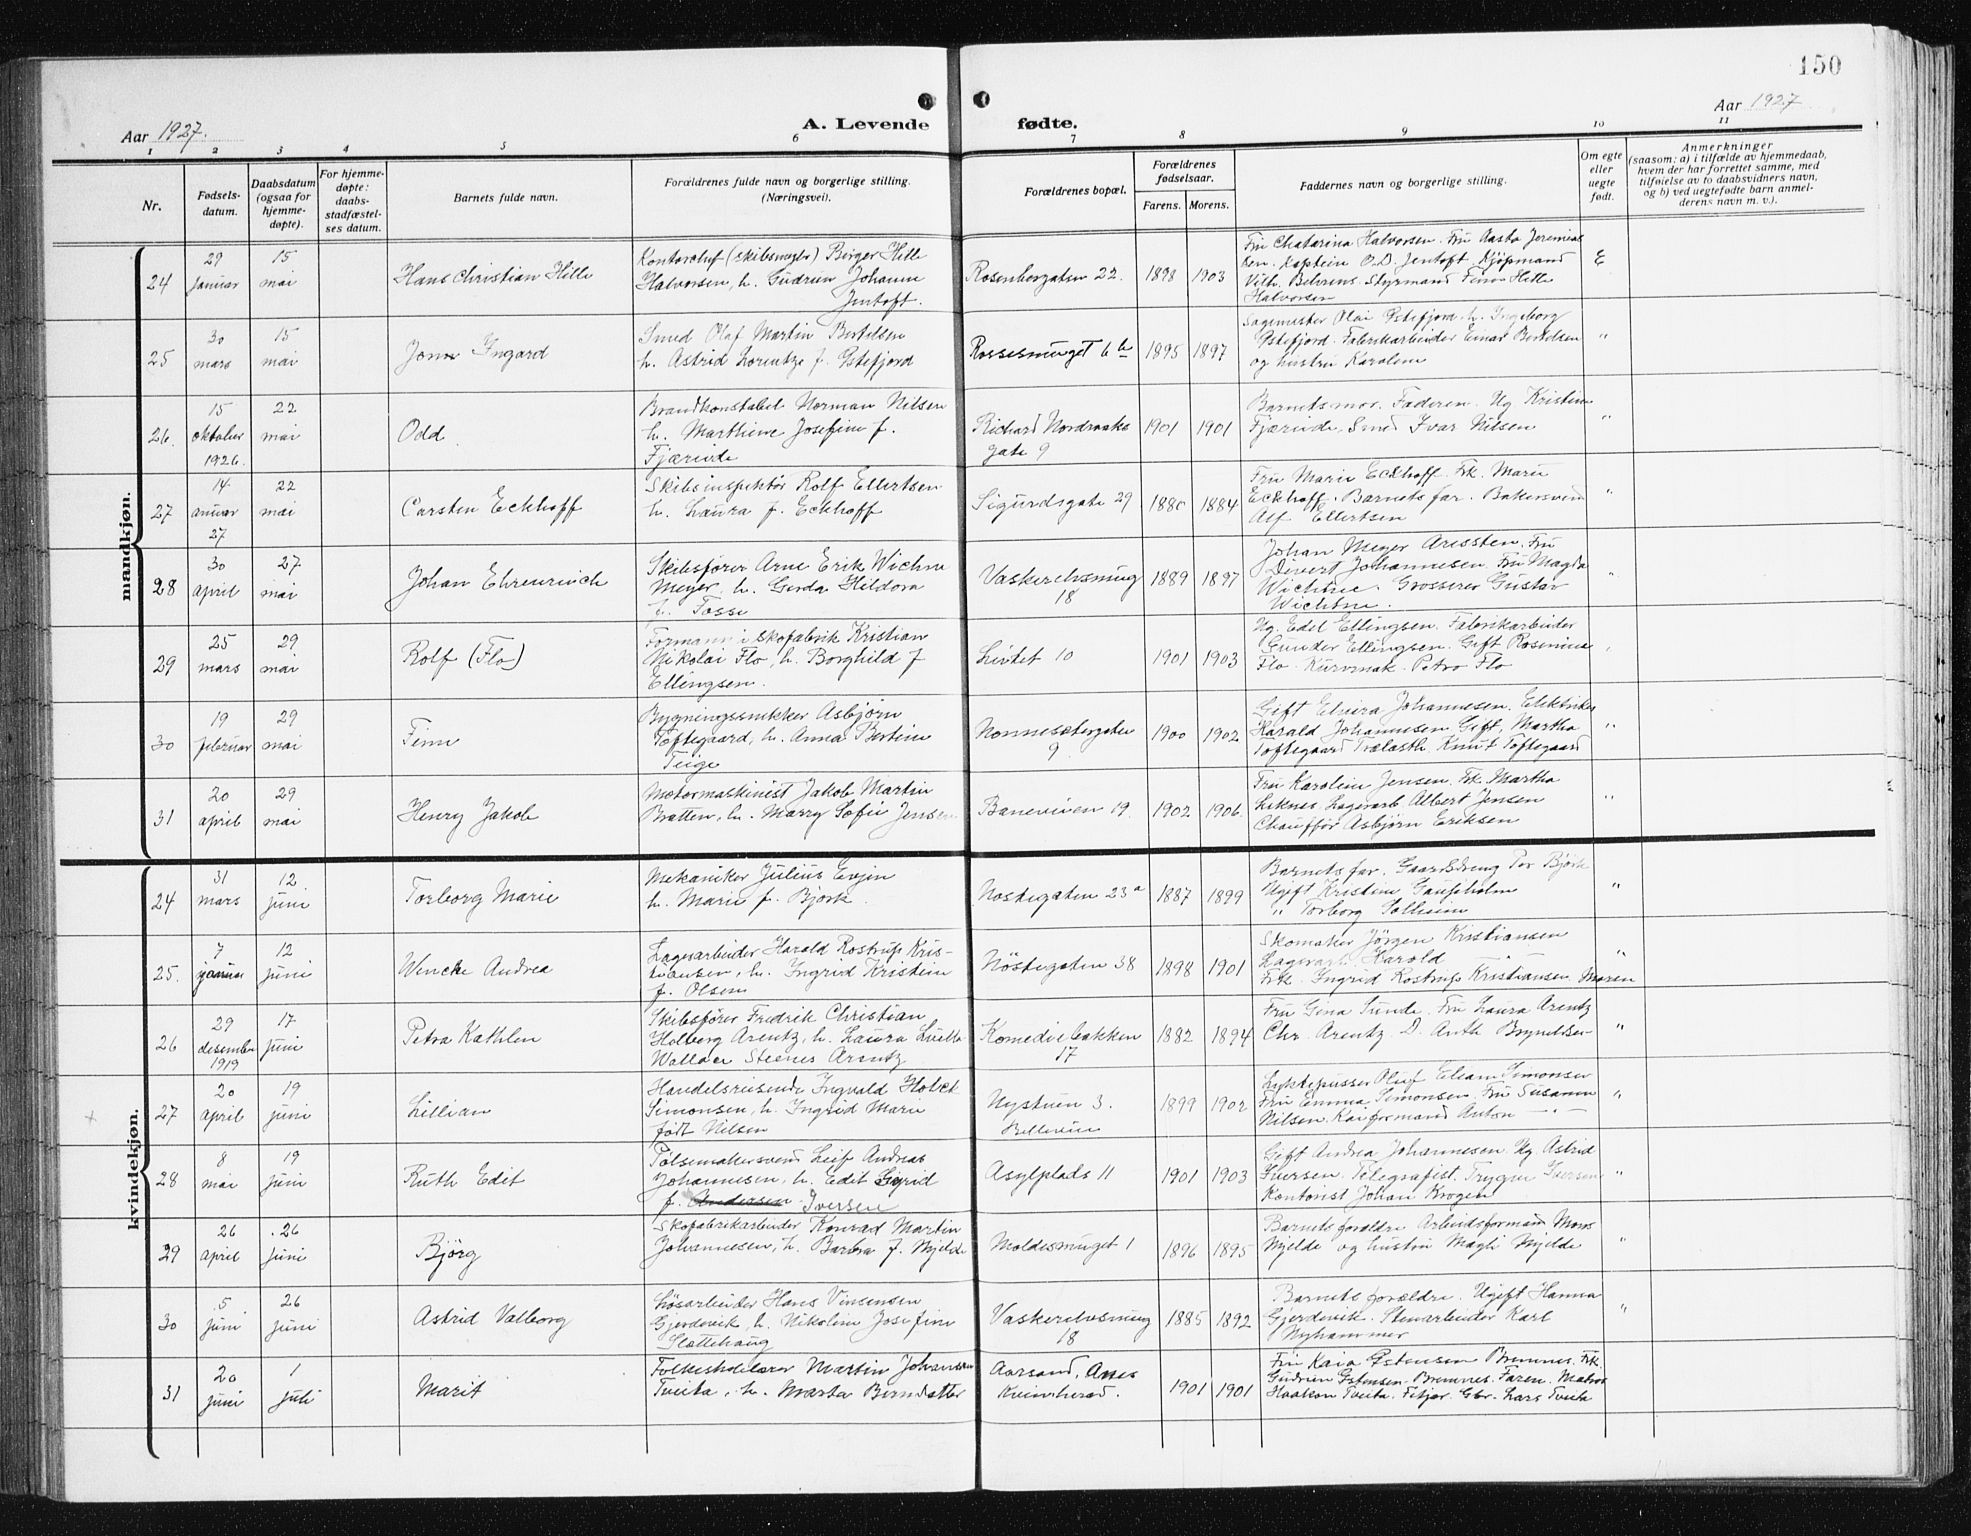 150
Aar 1927.
A. Levende
fødte.
Aar 1927
1 2 3 4 5 6 7 8 9 10 11
Nr.
Fødsels-
datum.
Daabsdatum
(ogsaa for
hjemme-
døpte).
For hjemme-
døpte:
daabs-
stadfæstel-
ses datum.
Barnets fulde navn.
Forældrenes fulde navn og borgerlige stilling.
(Næringsvei).
Forældrenes bopæl.
Forældrenes
fødselsaar.
Farens. Morens.
Faddernes navn og borgerlige stilling.
Om egte
eller
uegte
født.
Anmerkninger
(saasom: a) i tilfælde av hjemmedaab,
hvem der har forrettet samme, med
tilføielse av to daabsvidners navn,
og b) ved uegtefødte barn anmel-
derens navn m. v.).
mandkjøn.
24
29
januar
15
mai
Hans Christian Hille
Kontorchef (skibsmegler) Birger Hille
Halvorsen, h. Gudrun Johanne
Jentoft.
Rosenborgaten 22.
1898 1903
Fru Chatarina Halvorsen. Fru Aasta Jeremias
sen. Kaptein O.D. Jentoft. Kjøpmand
Vilh. Behrens. Styrmand Finn Hille
Halvorsen
E
25
30
mars
15
mai
Jonn Ingard
Smed Olaf Martin Bertelsen
h. Astrid Lorentze f. Østefjord
Rossesmuget 6 b
1895 1897
Sagmester Olai Østefjord. h. Ingeborg
Østefjord. Fabrikarbeider Einar Bertelsen
og hustru Karoline
"
26.
15
oktober
1926.
22
mai
Odd
Brandkonstabel Norman Nilsen
h. Marthine Josefine f.
Fjæreide
Richard Nordraaks
gate 9
1901 1901
Barnets mor. Faderen. Ug. Kristine
Fjæreide, Smed Ivar Nilsen
"
27
14
anuar
27
22
mai
Carsten Eckhoff
Skibsinspektør Rolf Ellertsen
h. Laura f. Eckhoff
Sigurdsgate 29
1880 1884
Fru Marie Eckhoff. Frk. Marie
Eckhoff. Barnets far. Bakersvend
Alf Ellertsen
"
28
30
april
27
mai
Johan Ehrenreich
Skibsfører Arne Erik Wichne
Meyer h. Gerda Hildora
h. Tosse
Vaskerelvsmug
18
1889 1897
Johan Meyer Anssten. Fru
Divert Johannesen. Fru Magda
Wichne. Grosserer Gustav
Wichne.
"
29
25
mars
29
mai
Rolf (Flo)
Formann i skofabrik Kristian
Nikolai Flo, h. Borghild f
Ellingsen.
Livtet 10
1901 1903
Ug. Edel Ellingsen. Fabrikarbeider
Gunder Ellingsen. Gift Rosenine
Flo. Kurvmak. Petro Flo
30
19
februar
29
mai
Finn
Bygningssnikker Asbjørn
Toftegaard, h. Anna Bertine
Teige
Nonneseter gaten
9
1900 1902
Gift Elvira Johannesen. Elektriker
Harald Johannesen Gift, Martha
Toftegaard Trælasth. Knut Toftegaard
"
31
20
april
29
mai
Henry Jakob
Motormaskinist Jakob Martin
Bratten, h. Marry Sofie Jensen
Baneveien 19.
1902 1906.
Fru Karoline Jensen. Frk. Martha
Leknes. Lagerarb. Albert Jensen
Chauffør Asbjørn Eriksen
"
kvindekjøn.
24
31
mars
12
juni
Torborg Marie
Mekaniker Julius Evjen
h. Marie f. Bjørk.
Nostegaten 23a
1887 1899
Barnets far. Gaardsdreng Per Bjørk
Ugift Kristine Gausholm
" Torborg Solheim
"
25.
7
januar
12
juni
Wenche Andrea
Lagerarbeider Harald Rostrup Kris-
tiansen, h. Ingrid Kristine
f. Olsen
Nøstegaten 38
1898 1901
Skomaker Jørgen Kristiansen
Lagerarb. Harold
Frk. Ingrid Rostrup Kristiansen, Maren
"
26
29
desember
1919
17
juni
Petra Kathlen
Skibsfører Fredrik Christian
Holberg Arentz, h. Laura Luella
Wallace Steenes Arentz
Komediebakken
17
1882 1894
Fru Gina Sunde. Fru Laura Arentz
Chr. Arentz. D. Anth Bryneldsen
"
27
20
april
19
juni
Lillian
Handelsreisende Ingvald Holck
Simonsen, h. Ingrid Marie
født Nilsen
Nystuen 3.
Bellevue
1899 1902
Lyktepusser Oluf Eliam Simonsen
Fru Emma Simonsen, Fru Susanne
Nilsen. Kaiformand Anton — " —
"
28
8
mai
19
juni
Ruth Edit
Pølsemakersvend Leif Andreas
Johannesen, h. Edit Sigrid
f. Andersen Iversen
Asylplads 11
1901 1903
Gift Andrea Johannesen. Ug. Astrid
Iversen. Telegrafist. Trygve Iversen
Kontorist Johan Krogen
"
29
26
april
26
juni
Bjørg
Skofabrikarbeider Konrad Martin
Johannesen, h. Barbra f. Mjelde
Moldesmuget 1
1896 1895
Barnets forældre Arbeidsformand Mons
Mjelde og hustru Magli Mjelde
"
30
5
juni
26
juni
Astrid Valborg
Løsarbeider Hans Vinsensen
Gjerdevik, h. Nikoline Josefine
Slottehaug
Vaskerelvsmug
18
1885 1892
Barnets forældre. Ugift Hanna
Gjerdevik. Stenarbeider Karl
Nyhammer
"
31
20
juni
1
juli
Marit
Folkeskolelærer Martin Johannsen
Tveita, h. Marta Berndotter
Aarsand, Ones
Kvinnherad.
1901 1901
Fru Kaia Østensen Bremnes. Frk.
Gudrun Østensen. Bremnes. Faren. Matros
Haakon Tveita. Fitjar. Gbr. Lars Tveita